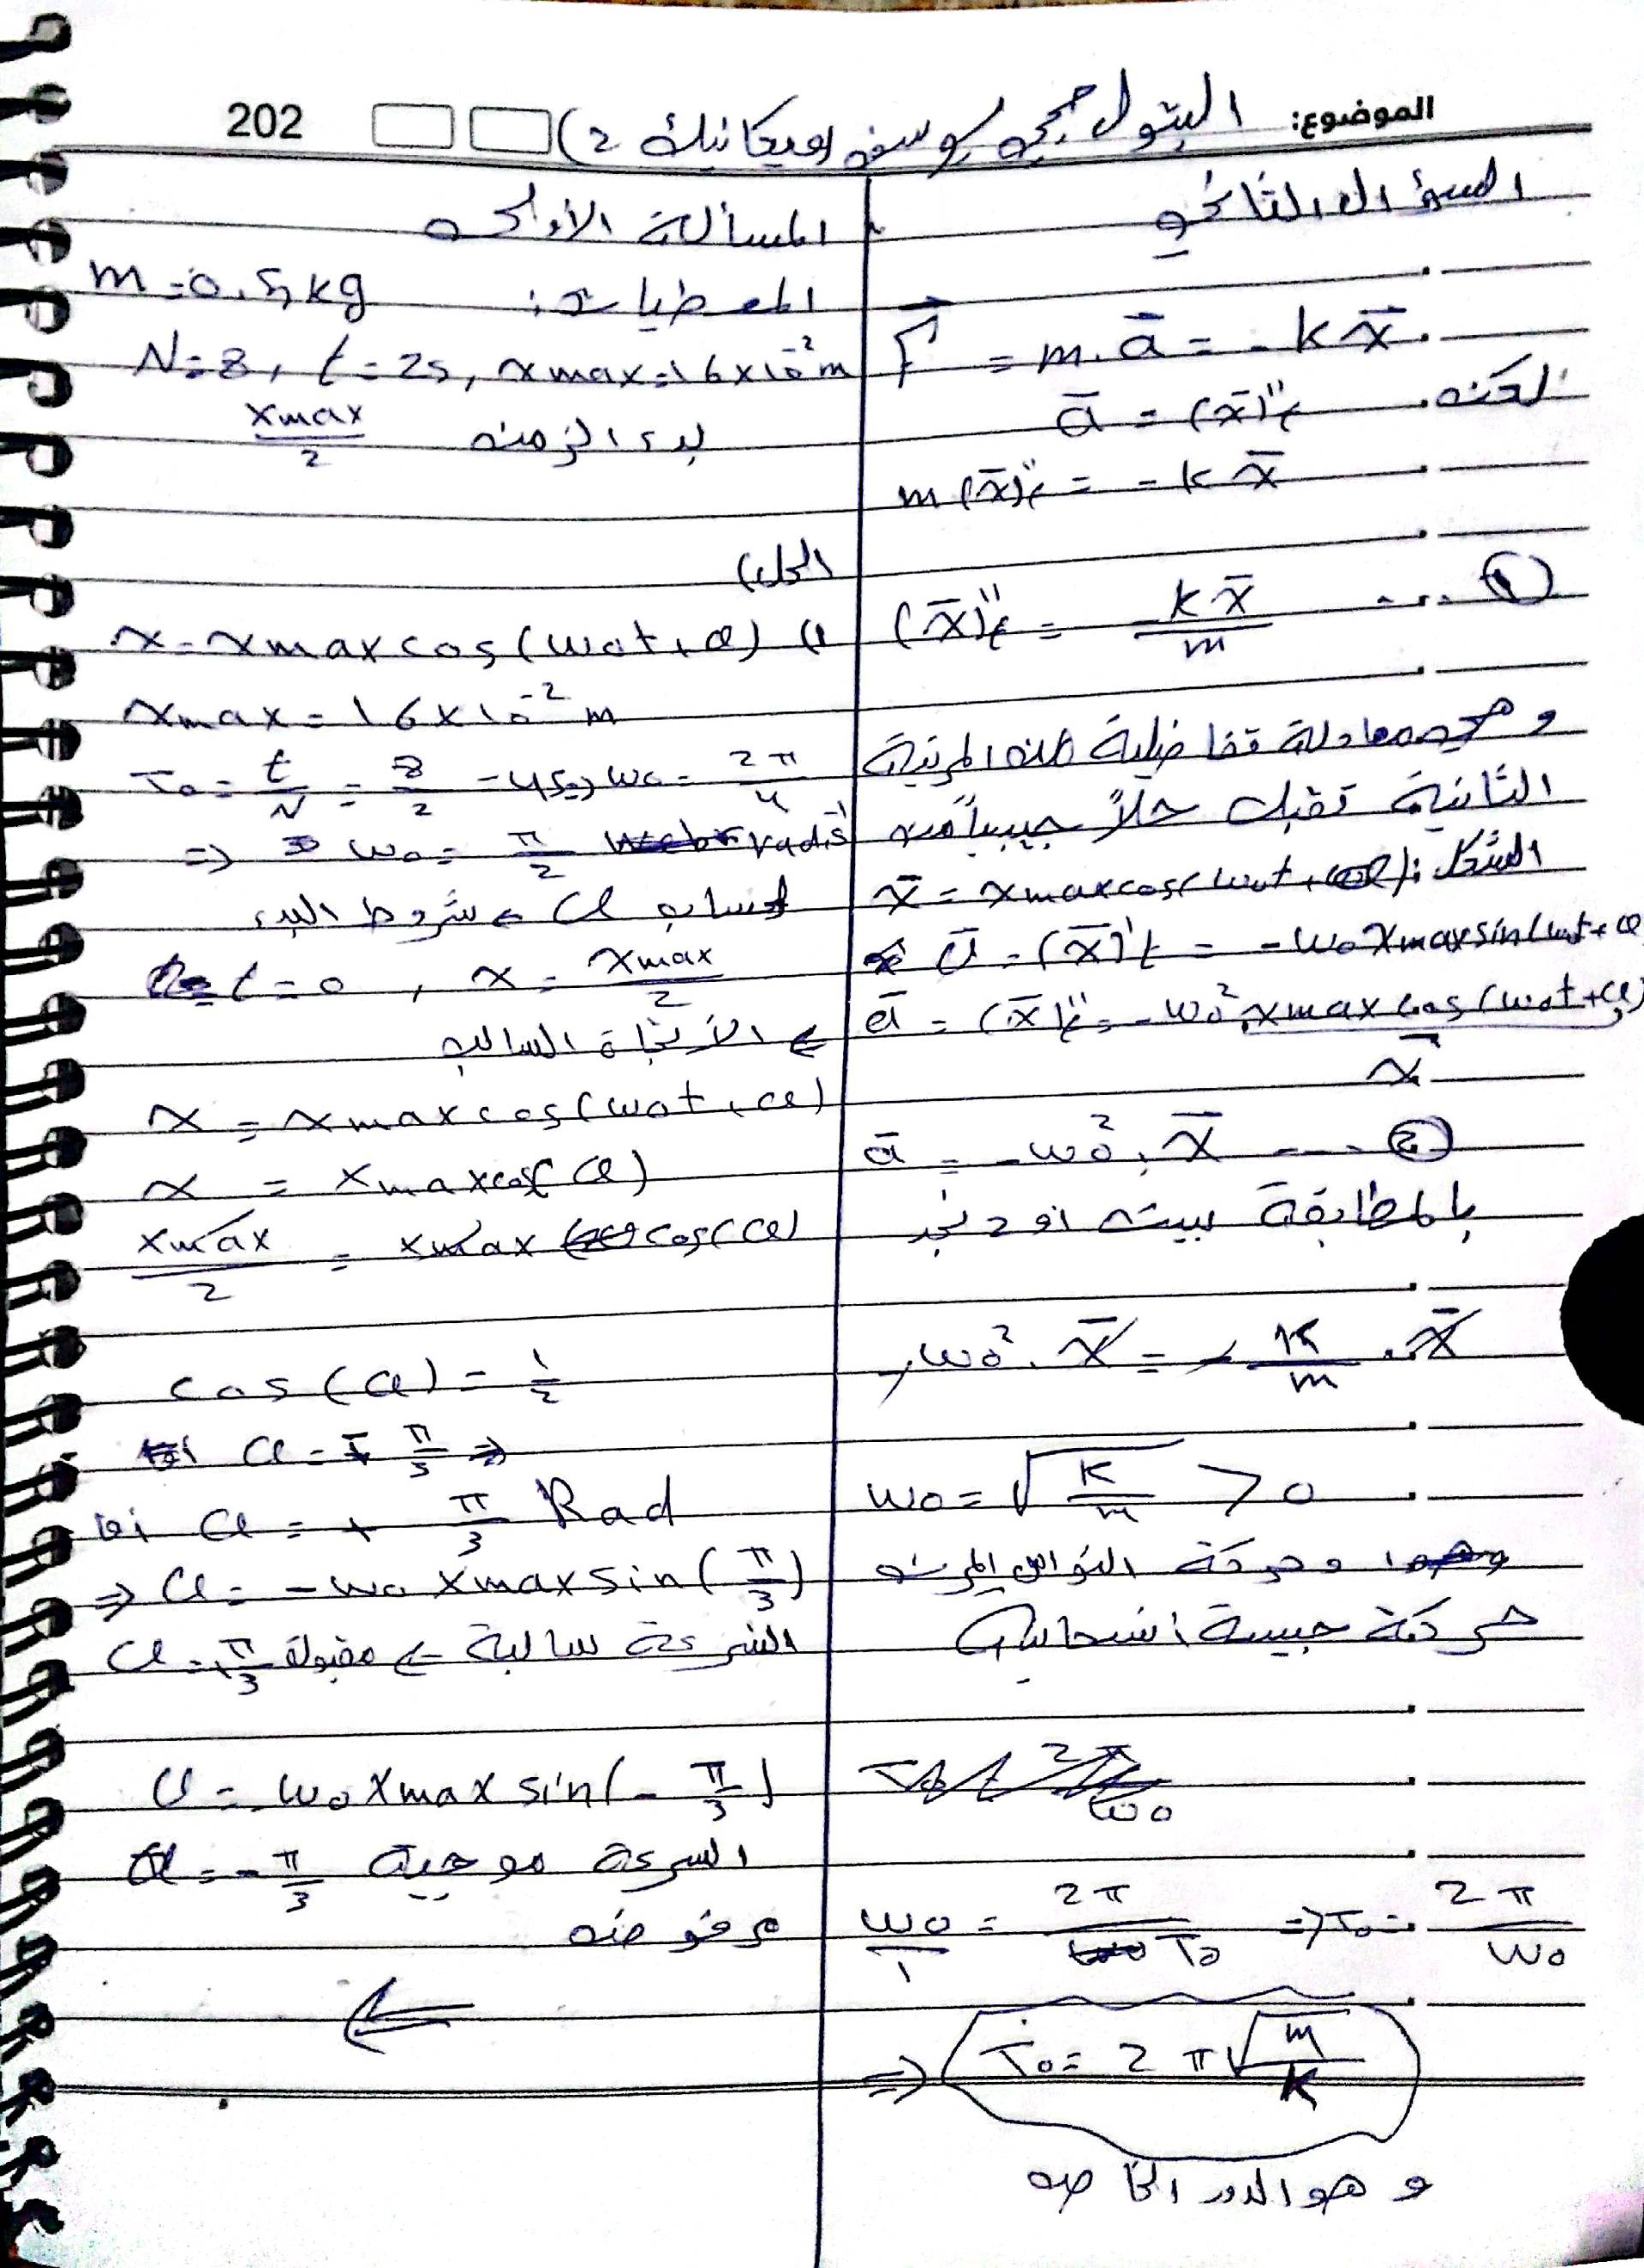 الموضوع: البتول حجي يوسف (ميكانيك 2) 202
السؤال الثاني
F = m.a̅ = - k x̅
لكن a̅ = (x̅)''t
m (x̅)''t = - k x̅
(x̅)''t = - k x̅ / m ... ①
وهي معادلة تفاضلية من المرتبة
الثانية تقبل حلاً جيبياً من
الشكل: x̅ = xmax cos(ω0t + φ)
v̅ = (x̅)'t = - ω0 xmax sin(ω0t + φ)
a̅ = (x̅)''t = - ω0² . xmax cos(ω0t + φ)
x̅
a̅ = - ω0² . x̅ ... ②
بالمطابقة بين 1 و 2 نجد
- ω0² . x̅ = - K/m . x̅
ω0 = √(K/m) > 0
وحركة النواس المرن
حركة جيبية انسحابية
ω0/1 = 2π/T0 => T0 = 2π/ω0
=> T0 = 2π√(m/K)
وهو الدور الخاص
المسألة الأولى
المعطيات: m = 0.5 kg
N = 8, t = 2s, xmax = 16×10⁻² m
بدء الزمن xmax/2
الحل)
1) x = xmax cos(ω0t + φ)
xmax = 16×10⁻² m
T0 = t/N = 8/2 = 4s => ω0 = 2π/4
=> ω0 = π/2 rad s⁻¹
لحساب φ ← شروط البدء
t = 0 , x = xmax/2
← الاتجاه السالب
x = xmax cos(ω0t + φ)
x = xmax cos(φ)
xmax/2 = xmax cos(φ)
cos(φ) = 1/2
φ = ∓ π/3 =>
اما φ = + π/3 Rad
=> v = - ω0 xmax sin(π/3)
السرعة سالبة ← مقبولة φ = π/3
v = - ω0 xmax sin(- π/3)
السرعة موجبة φ = - π/3
مرفوضة